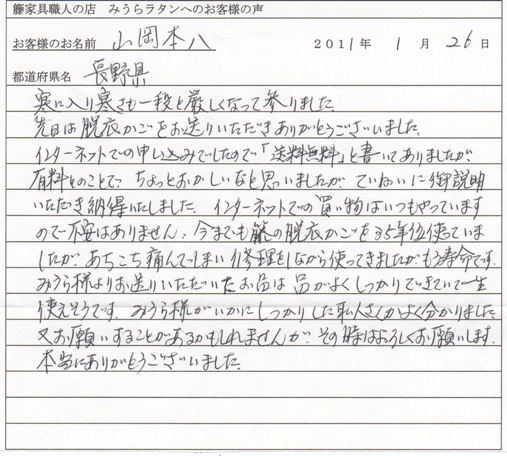 籐家具職人の店 みうらラタンへのお客様の声
お客様のお名前 山岡本八 2011年 1月 26日
都道府県名 長野県
寒に入り寒さも一段と厳しくなって参りました。
先日は脱衣かごをお送りいただきありがとうございました。
インターネットでの申し込みでしたので「送料無料」と書いてありましたが
有料とのことで、ちょっとおかしいなと思いましたが、ていねいに御説明
いただき納得いたしました。インターネットでの買い物はいつもやっています
ので不安はありません。今までも籐の脱衣かごを35年位使っていま
したが、あちこち痛んでしまい修理をしながら使ってきましたがもう寿命です。
みうら様よりお送りいただいたお品は品がよくしっかりできていて一生
使えそうです。みうら様がいかにしっかりした職人さんかよく分かりました
又お願いすることがあるかもしれませんが、その時はよろしくお願いします。
本当にありがとうございました。